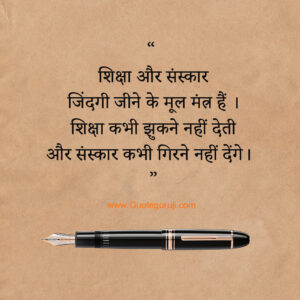 “
शिक्षा और संस्कार
जिंदगी जीने के मूल मंत्र हैं ।
शिक्षा कभी झुकने नहीं देती
और संस्कार कभी गिरने नहीं देंगे।
”
www.Quoteguruji.com